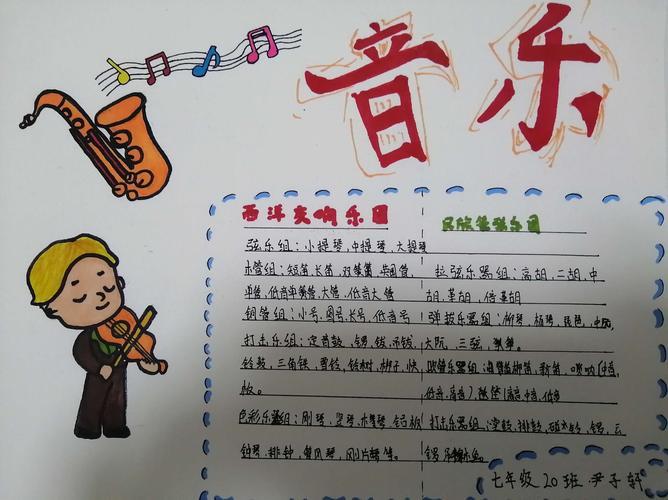 音乐
西洋交响乐团
民族管弦乐团
弦乐组：小提琴，中提琴，大提琴
木管组：短笛，长笛，双簧管，英国管，
单管，低音单簧管，大管，低音大管
铜管组：小号，圆号，长号，低音号
打击乐组：定音鼓，锣，钹，吊钹，
铃鼓，三角铁，响铃，铃树，梆子，快
板。
色彩乐组：刚琴，竖琴，木琴，铝板
钟琴，排钟，管风琴，刚片琴等。
拉弦乐器组：高胡，二胡，中
胡，革胡，倍革胡
弹拨乐器组：柳琴，扬琴，琵琶，中阮，
大阮，三弦，等。
吹管乐器组：梆笛，新笛，唢呐（中音，
低音，高音），笙（高中音，低音
打击乐器组：堂鼓，排鼓，碰铃，锣，云
锣
七年级20班尹子轩